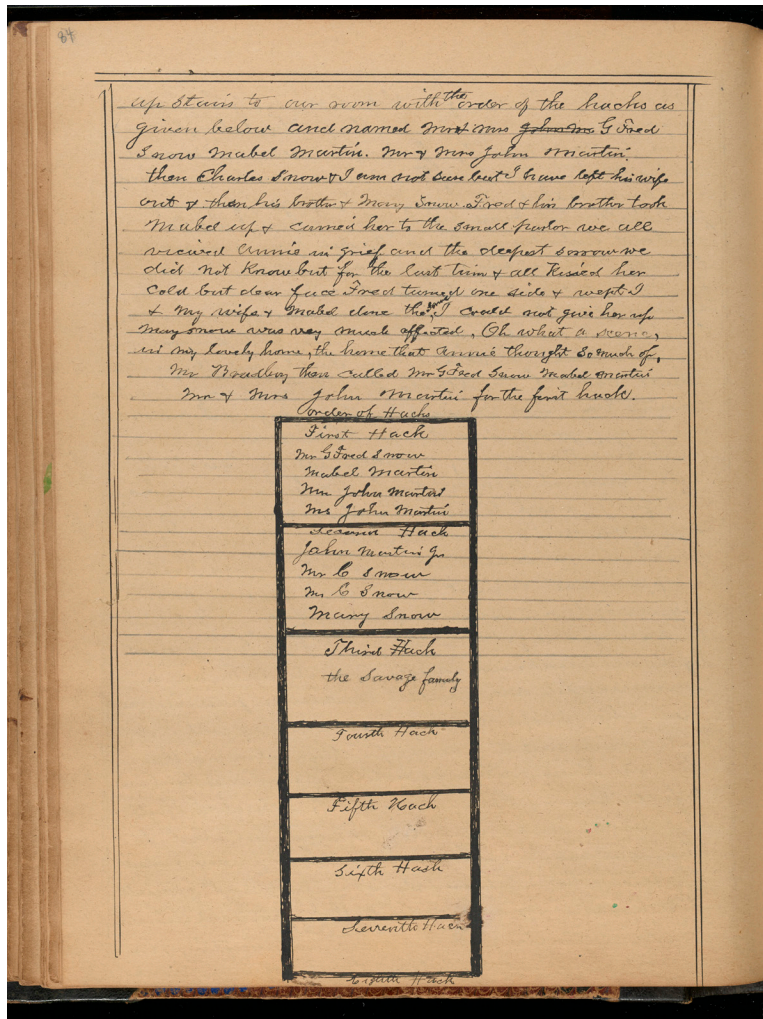 84
up stairs to our room with the order of the hacks as
given below and named Mr & Mrs John M G Fred
Snow Mabel Martin. Mr & Mrs John Martin.
then Charles Snow & I am not sure but I have left his wife
out & then his brother & Mary Snow. Fred & his brother took
Mabel up & carried her to the small parlor we all
viewed Annie in grief and the deepest sorrow we
did not know but for the last time & all kissed her
cold but dear face Fred turned one side & wept I
& my wife & Mabel done the same, I could not give her up
Mary Snow was very much affected, Oh what a scene,
in my lovely home, the home that Annie thought so much of,
Mr Bradley then called Mr G Fred Snow Mabel Martin
Mr & Mrs John Martin for the first hack.
order of Hacks
First Hack
Mr G Fred Snow
Mabel Martin
Mr John Martin
Mrs John Martin
Second Hack
John Martin Jr
Mr C Snow
Mrs C Snow
Mary Snow
Third Hack
the Savage family
Fourth Hack
Fifth Hack
Sixth Hack
Seventh Hack
Eighth Hack